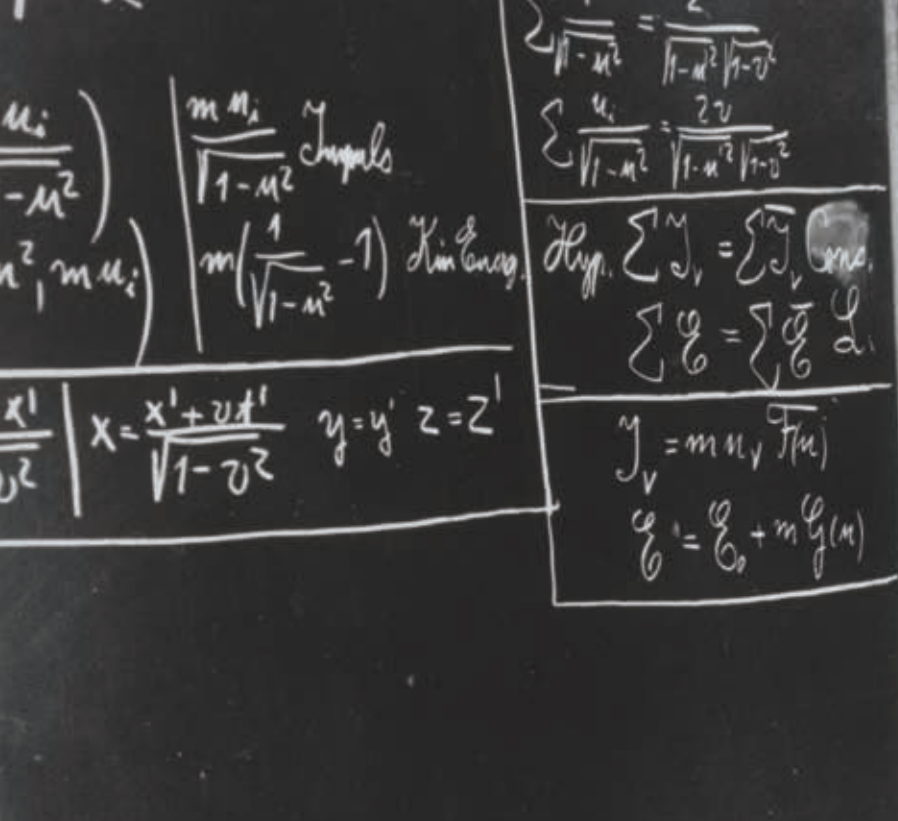 u_i / √(1-u²) )
u², m u_i )
m u_i / √(1-u²) Impuls
m( 1 / √(1-u²) -1) Kin Energ.
x' / v² | x = (x' + vt') / √(1-v²) y = y' z = z'
Σ 1 / √(1-u²) = 2 / √(1-u'²) √(1-v²)
Σ u_i / √(1-u²) = 2v / √(1-u'²) √(1-v²)
Hyp. Σ I_ν = Σ Ī_ν
Σ E = Σ Ē
I_ν = m u_ν F(u)
E = E₀ + m G(u)